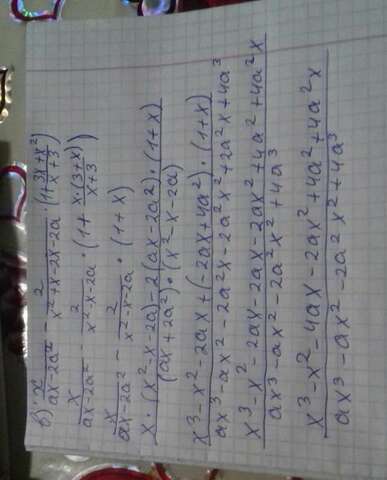 в) x/(ax-2a²) - 2/(x²+x-2x-2a) · (1+(3x+x²)/(x+3))
x/(ax-2a²) - 2/(x²-x-2a) · (1+(x·(3+x))/(x+3))
x/(ax-2a²) - 2/(x²-x-2a) · (1+x)
(x·(x²-x-2a)-2(ax-2a²)·(1+x))/((ax+2a²)·(x²x-2a))
(x³-x²-2ax+(-2ax+4a²)·(1+x))/(ax³-ax²-2a²x-2a²x²+2a²x+4a³)
(x³-x²-2ax-2ax-2ax²+4a²+4a²x)/(ax³-ax²-2a²x²+4a³)
(x³-x²-4ax-2ax²+4a²+4a²x)/(ax³-ax²-2a²x²+4a³)